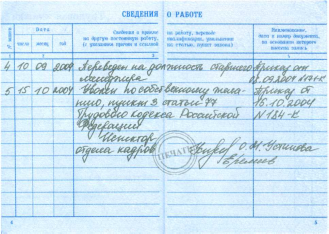 СВЕДЕНИЯ О РАБОТЕ
Сведения о приеме на работу, переводе
на другую постоянную работу, квалификации, увольнении
(с указанием причин и ссылкой на статью, пункт закона)
Наименование, дата и номер документа, на основании которого внесена запись
число месяц год
1 2 3 4
4 10 09 2004 Переведен на должность старшего Приказ от
менеджера 09.2004 №
5 15 10 2004 Уволен по собственному жела- Приказ от
нию, пункт 3 статьи 77 15.10.2004
Трудового кодекса Российской № 184-К
Федерации
Инспектор
отдела кадров О.М. Устинова
ПЕЧАТЬ
Еремеев
4 5